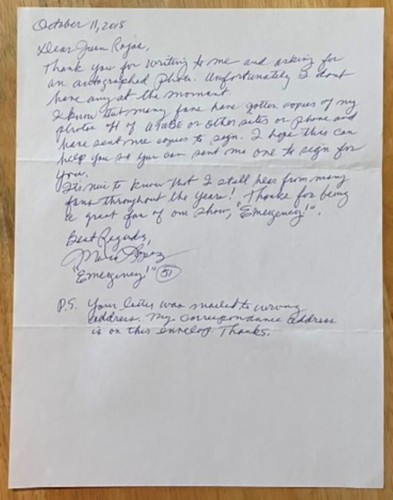 October 11, 2015
Dear Juan Rojas,
Thank you for writing to me and asking for
an autographed photo. Unfortunately I dont
have any at the moment.
I know that many fans have gotten copies of my
photos off of or other sites or phone and
have sent me copies to sign. I hope this can
help you so you can sent me one to sign for
you.
Its nice to know that I still hear from many
fans throughout the years! Thanks for being
a great fan of our show, "Emergency!".
Best Regards,
"Emergency!" 51
P.S. Your letter was mailed to wrong
address. My correspondance address
is on this envelop. Thanks.